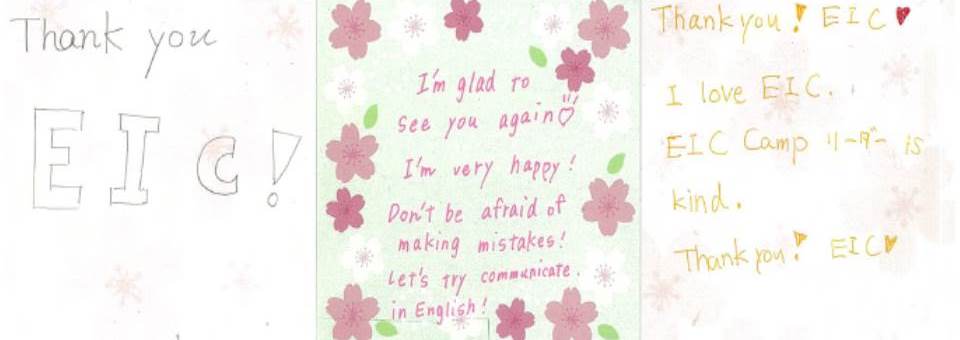 Thank you
EIC!
I'm glad to
see you again♡
I'm very happy!
Don't be afraid of
making mistakes!
Let's try communicate.
in English!
Thank you! EIC♥
I love EIC.
EIC Camp リーダー is
kind.
Thank you! EIC♥